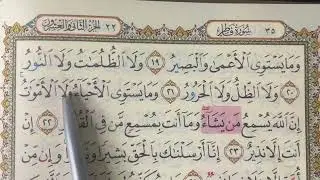 ٣٥ سُورَةُ فَاطِرٍ ٢٢ الجزء الثاني والعشرون
وَمَا يَسْتَوِي الْأَعْمَىٰ وَالْبَصِيرُ ١٩ وَلَا الظُّلُمَاتُ وَلَا النُّورُ
٢٠ وَلَا الظِّلُّ وَلَا الْحَرُورُ ٢١ وَمَا يَسْتَوِي الْأَحْيَاءُ وَلَا الْأَمْوَاتُ
إِنَّ اللَّهَ يُسْمِعُ مَن يَشَاءُ وَمَا أَنتَ بِمُسْمِعٍ مَّن فِي الْقُبُورِ ٢٢ إِنْ
أَنتَ إِلَّا نَذِيرٌ ٢٣ إِنَّا أَرْسَلْنَاكَ بِالْحَقِّ بَشِيرًا وَنَذِيرًا وَإِن مِّنْ